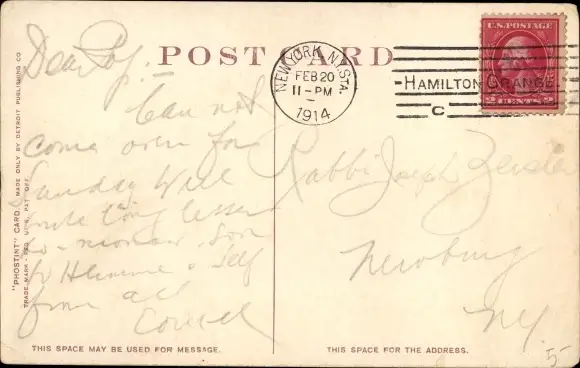 POST CARD
Dear Roy:-
Can not
come over for
Sunday will
write long letter
to-morrow.
from all
NEW YORK, N.Y. STA.
FEB 20
11-PM
1914
HAMILTON GRANGE
C
U.S. POSTAGE
2 CENTS 2
Rabbi Joseph
Newburg
NY.
5
"PHOSTINT" CARD. MADE ONLY BY DETROIT PUBLISHING CO.
TRADE MARK-REG. U.S. PAT. OFF.
THIS SPACE MAY BE USED FOR MESSAGE.
THIS SPACE FOR THE ADDRESS.